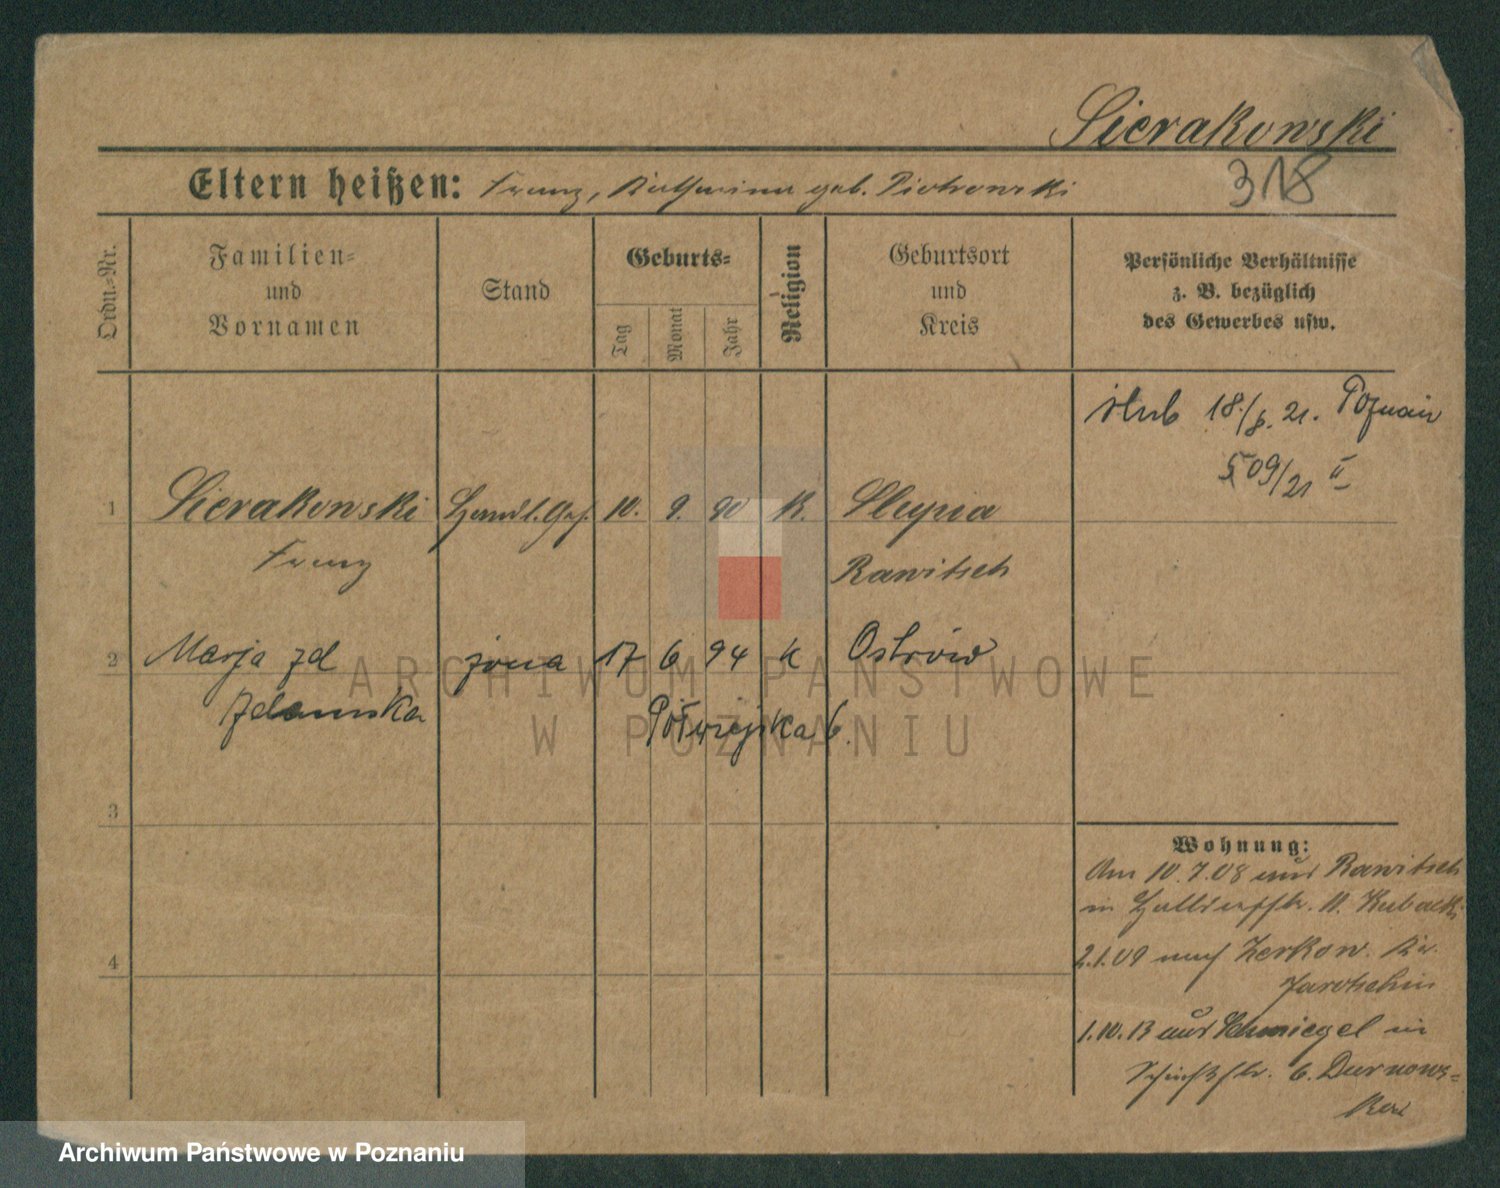 Sierakowski
318
Eltern heißen: Franz, Katharina geb. Piotrowski
Ordn.-Nr.
Familien-
und
Vornamen
Stand
Geburts-
Tag
Monat
Jahr
Religion
Geburtsort
und
Kreis
Persönliche Verhältnisse
z. B. bezüglich
des Gewerbes usw.
ślub 18./8. 21. Poznań
509/21 II
1 Sierakowski Handl. Geh. 10. 9. 90 K. Slupia
Franz Rawitsch
2 Marja zd żona 17 6 94 k Ostrów
Zdanuska
Półwiejska 6.
3
4
Wohnung:
Am 10.7.08 aus Rawitsch
in 11. Kubacki
2.1.09 nach Zerkow. Kr.
Jarotschin
1.10.13 aus Schmiegel in
6. Durnows-
ka
ARCHIWUM PAŃSTWOWE
W POZNANIU
Archiwum Państwowe w Poznaniu